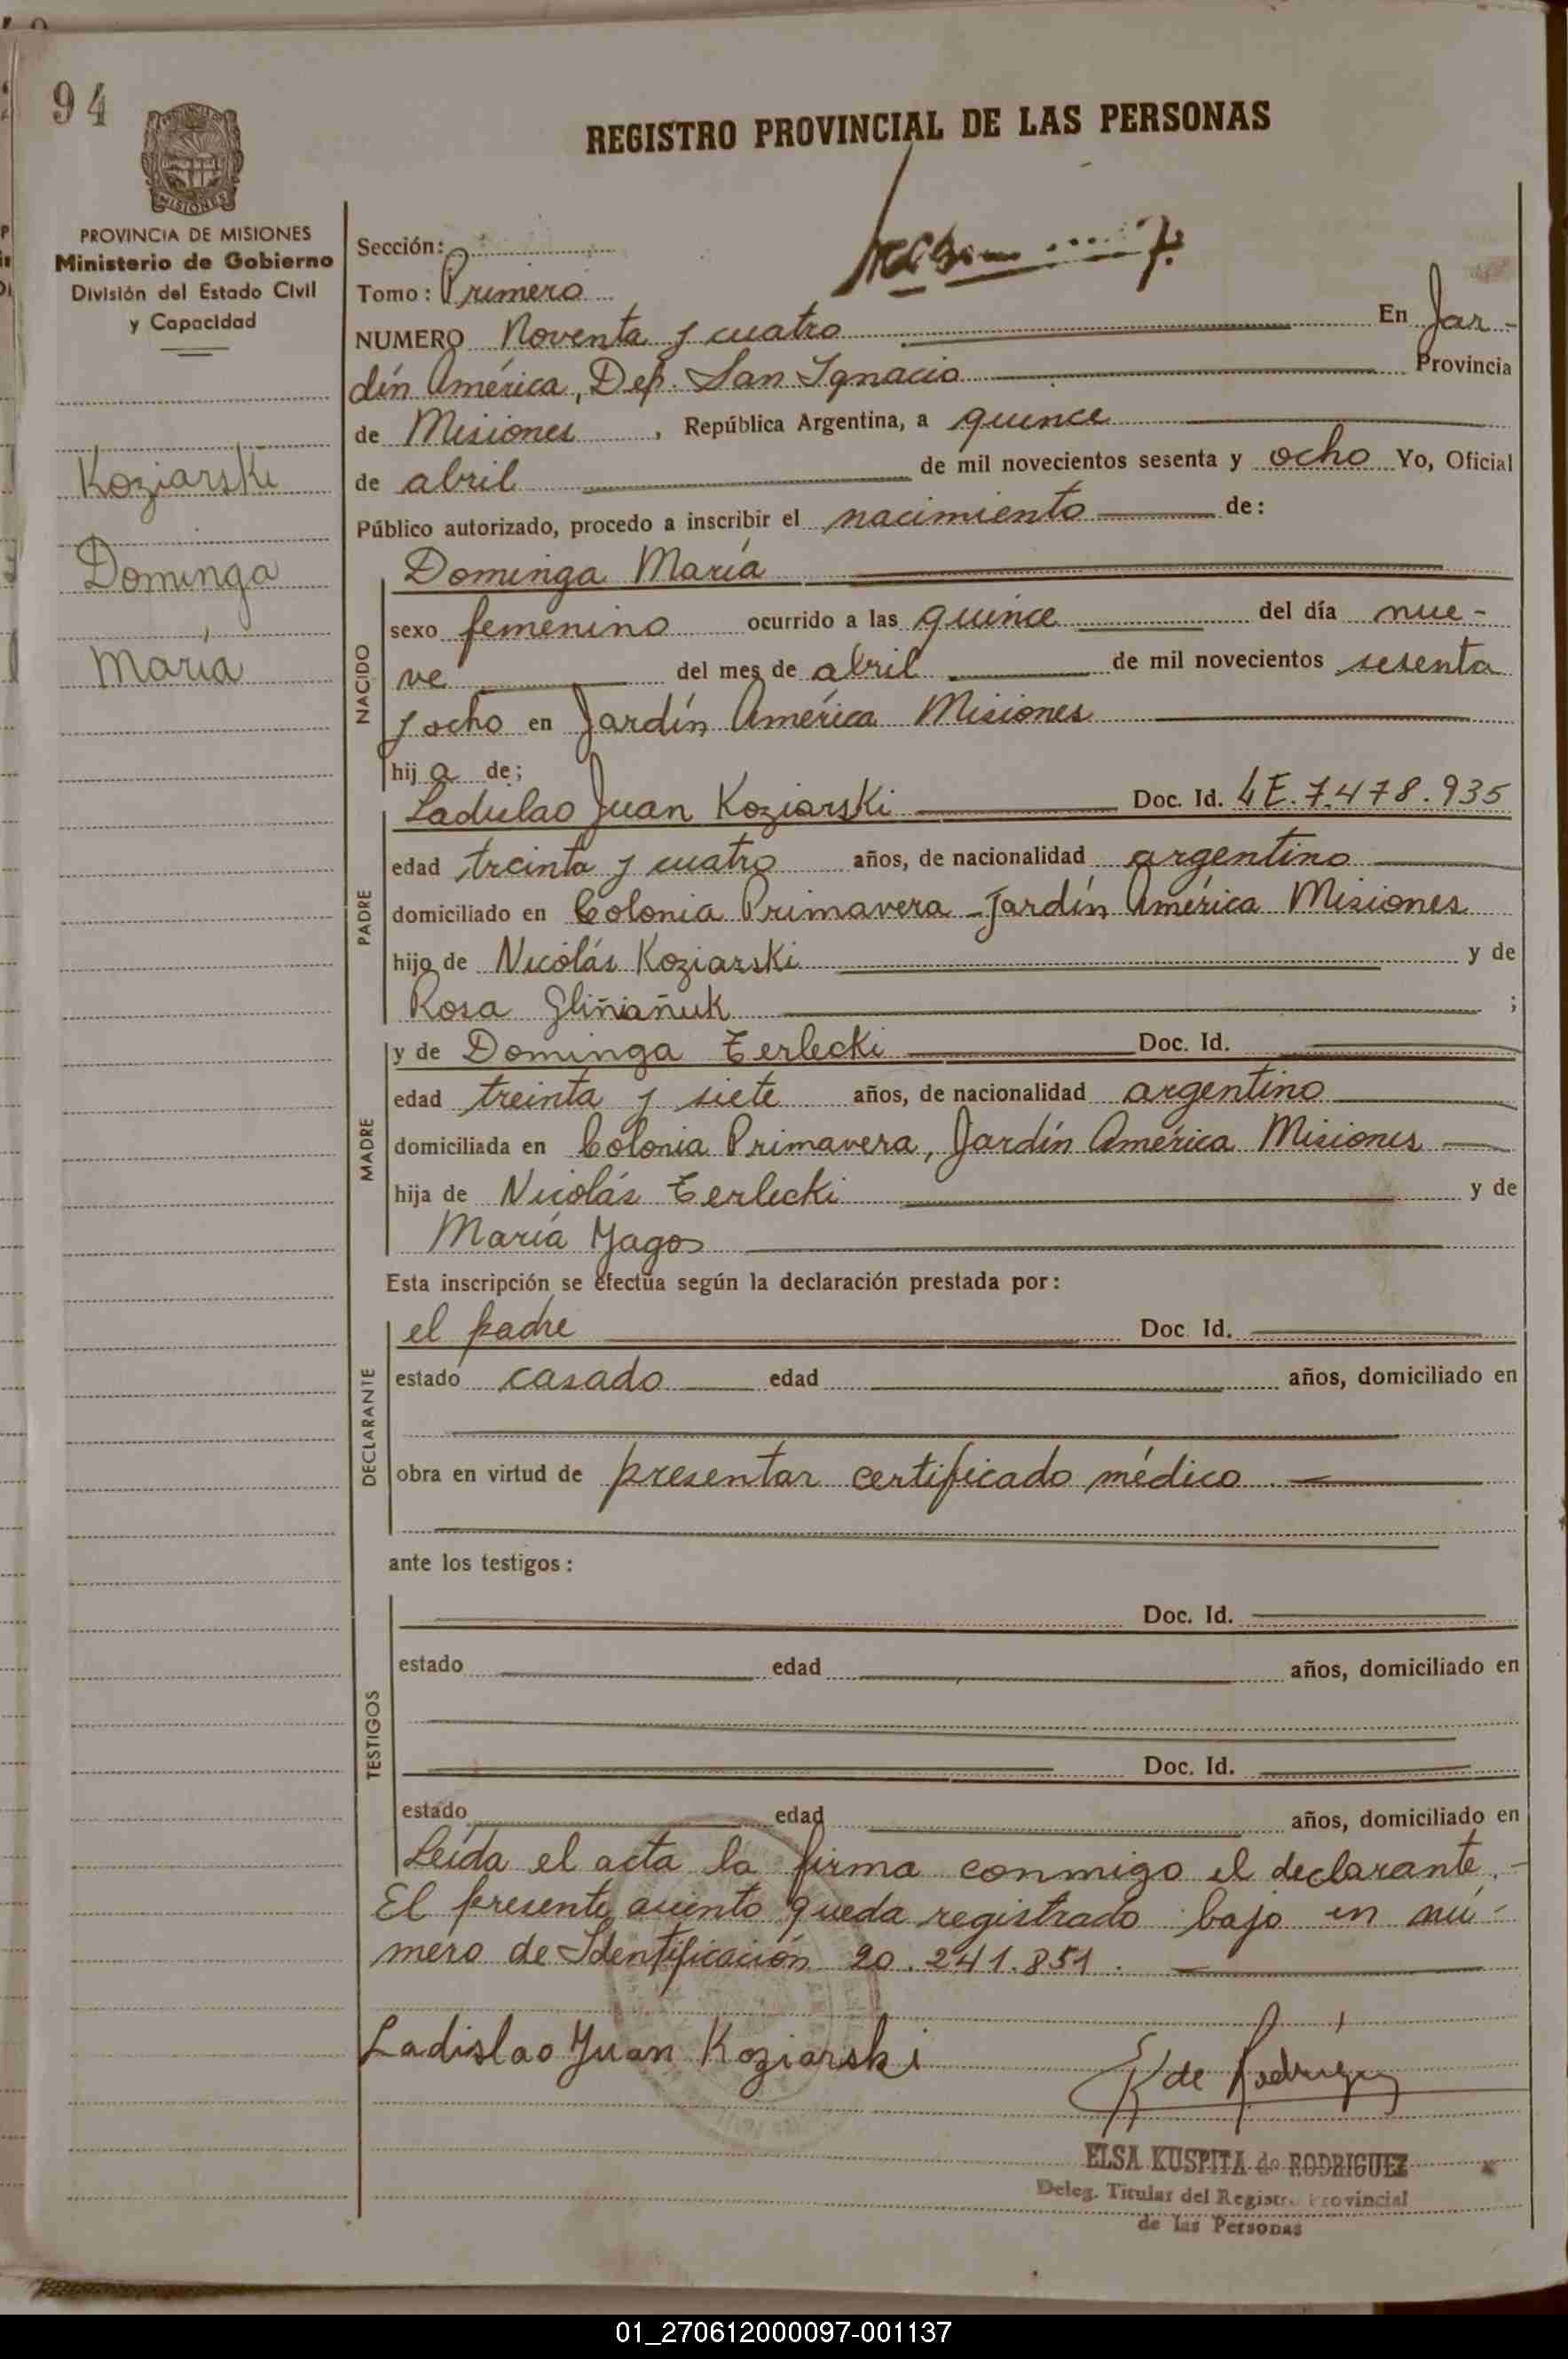 94
REGISTRO PROVINCIAL DE LAS PERSONAS
MISIONES
PROVINCIA DE MISIONES
Ministerio de Gobierno
División del Estado Civil
y Capacidad
Koziarski
Dominga
María
Sección:
Tomo: Primero
NUMERO Noventa y cuatro En Jar-
dín América, Dep. San Ignacio Provincia
de Misiones, República Argentina, a quince
de abril de mil novecientos sesenta y ocho Yo, Oficial
Público autorizado, procedo a inscribir el nacimiento de:
NACIDO
Dominga María
sexo femenino ocurrido a las quince del día nue-
ve del mes de abril de mil novecientos sesenta
y ocho en Jardín América Misiones
hija de;
PADRE
Ladislao Juan Koziarski Doc. Id. LE. 7.478.935
edad treinta y cuatro años, de nacionalidad argentino
domiciliado en Colonia Primavera - Jardín América Misiones
hijo de Nicolás Koziarski y de
Rosa Gliñiañuk ;
MADRE
y de Dominga Terlecki Doc. Id.
edad treinta y siete años, de nacionalidad argentino
domiciliada en Colonia Primavera, Jardín América Misiones
hija de Nicolás Terlecki y de
María Yagos
Esta inscripción se efectúa según la declaración prestada por:
DECLARANTE
el padre Doc. Id.
estado casado edad años, domiciliado en
obra en virtud de presentar certificado médico.
ante los testigos:
TESTIGOS
Doc. Id.
estado edad años, domiciliado en
Doc. Id.
estado edad años, domiciliado en
Leída el acta la firma conmigo el declarante.-
El presente asiento queda registrado bajo un nú-
mero de Identificación 20.241.851.
Ladislao Juan Koziarski
E K de Rodriguez
ELSA KUSPITA de RODRIGUEZ
Deleg. Titular del Registro Provincial
de las Personas
01_270612000097-001137